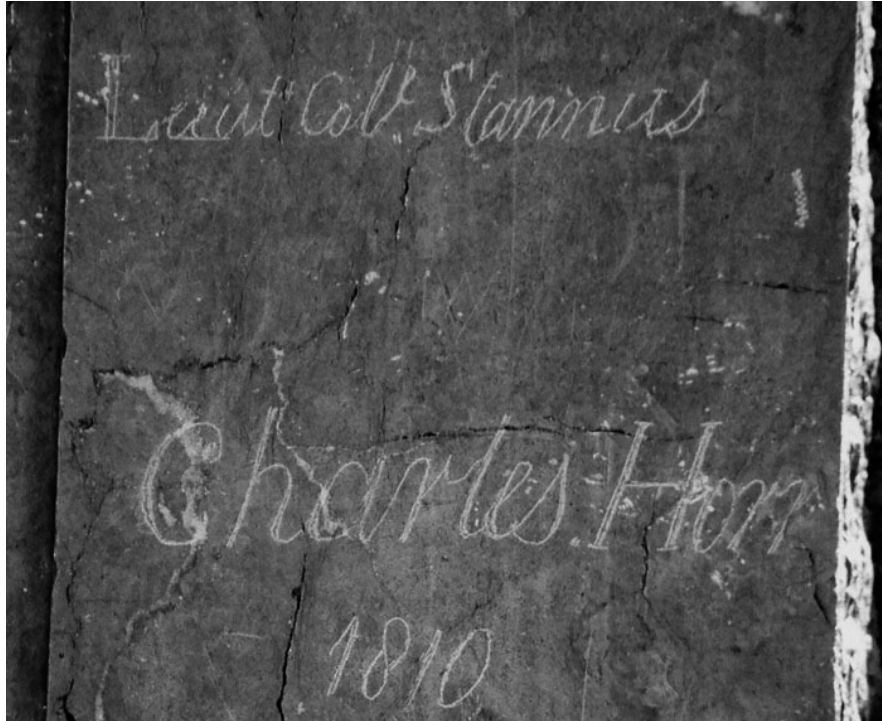 Lieut Coll Stannus
Charles. Horr
1810